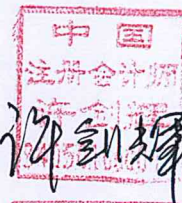 中国
注册会计师
许剑辉
许剑辉